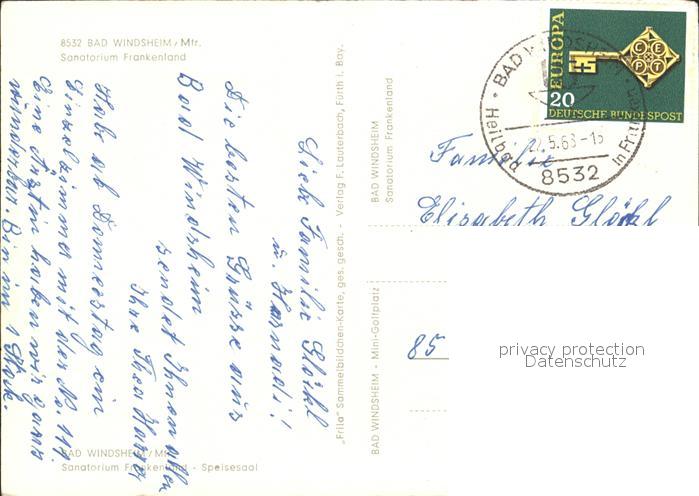 8532 BAD WINDSHEIM / Mfr.
Sanatorium Frankenland
Liebe Familie Glökl
u. !
Die besten Grüsse aus
Bad Windsheim
sendet Ihnen allen
Ihre Thea
Habe ab Donnerstag ein
Einzelzimmer mit der No. 111.
Eine Ärztin haben wir ganz
wunderbar. Bin im 1 Stock.
BAD WINDSHEIM / Mfr.
Sanatorium Frankenland - Speisesaal
„Frila" Sammelbildchen-Karte, ges. gesch. - Verlag F. Lauterbach, Fürth i. Bay.
BAD WINDSHEIM
Sanatorium Frankenland
BAD WINDSHEIM - Mini-Golfplatz
EUROPA
CEPT
20
DEUTSCHE BUNDESPOST
BAD WINDSHEIM
Heilbad
in Fran
5.68-15
8532
Familie
Elisabeth Glökl
85
privacy protection
Datenschutz